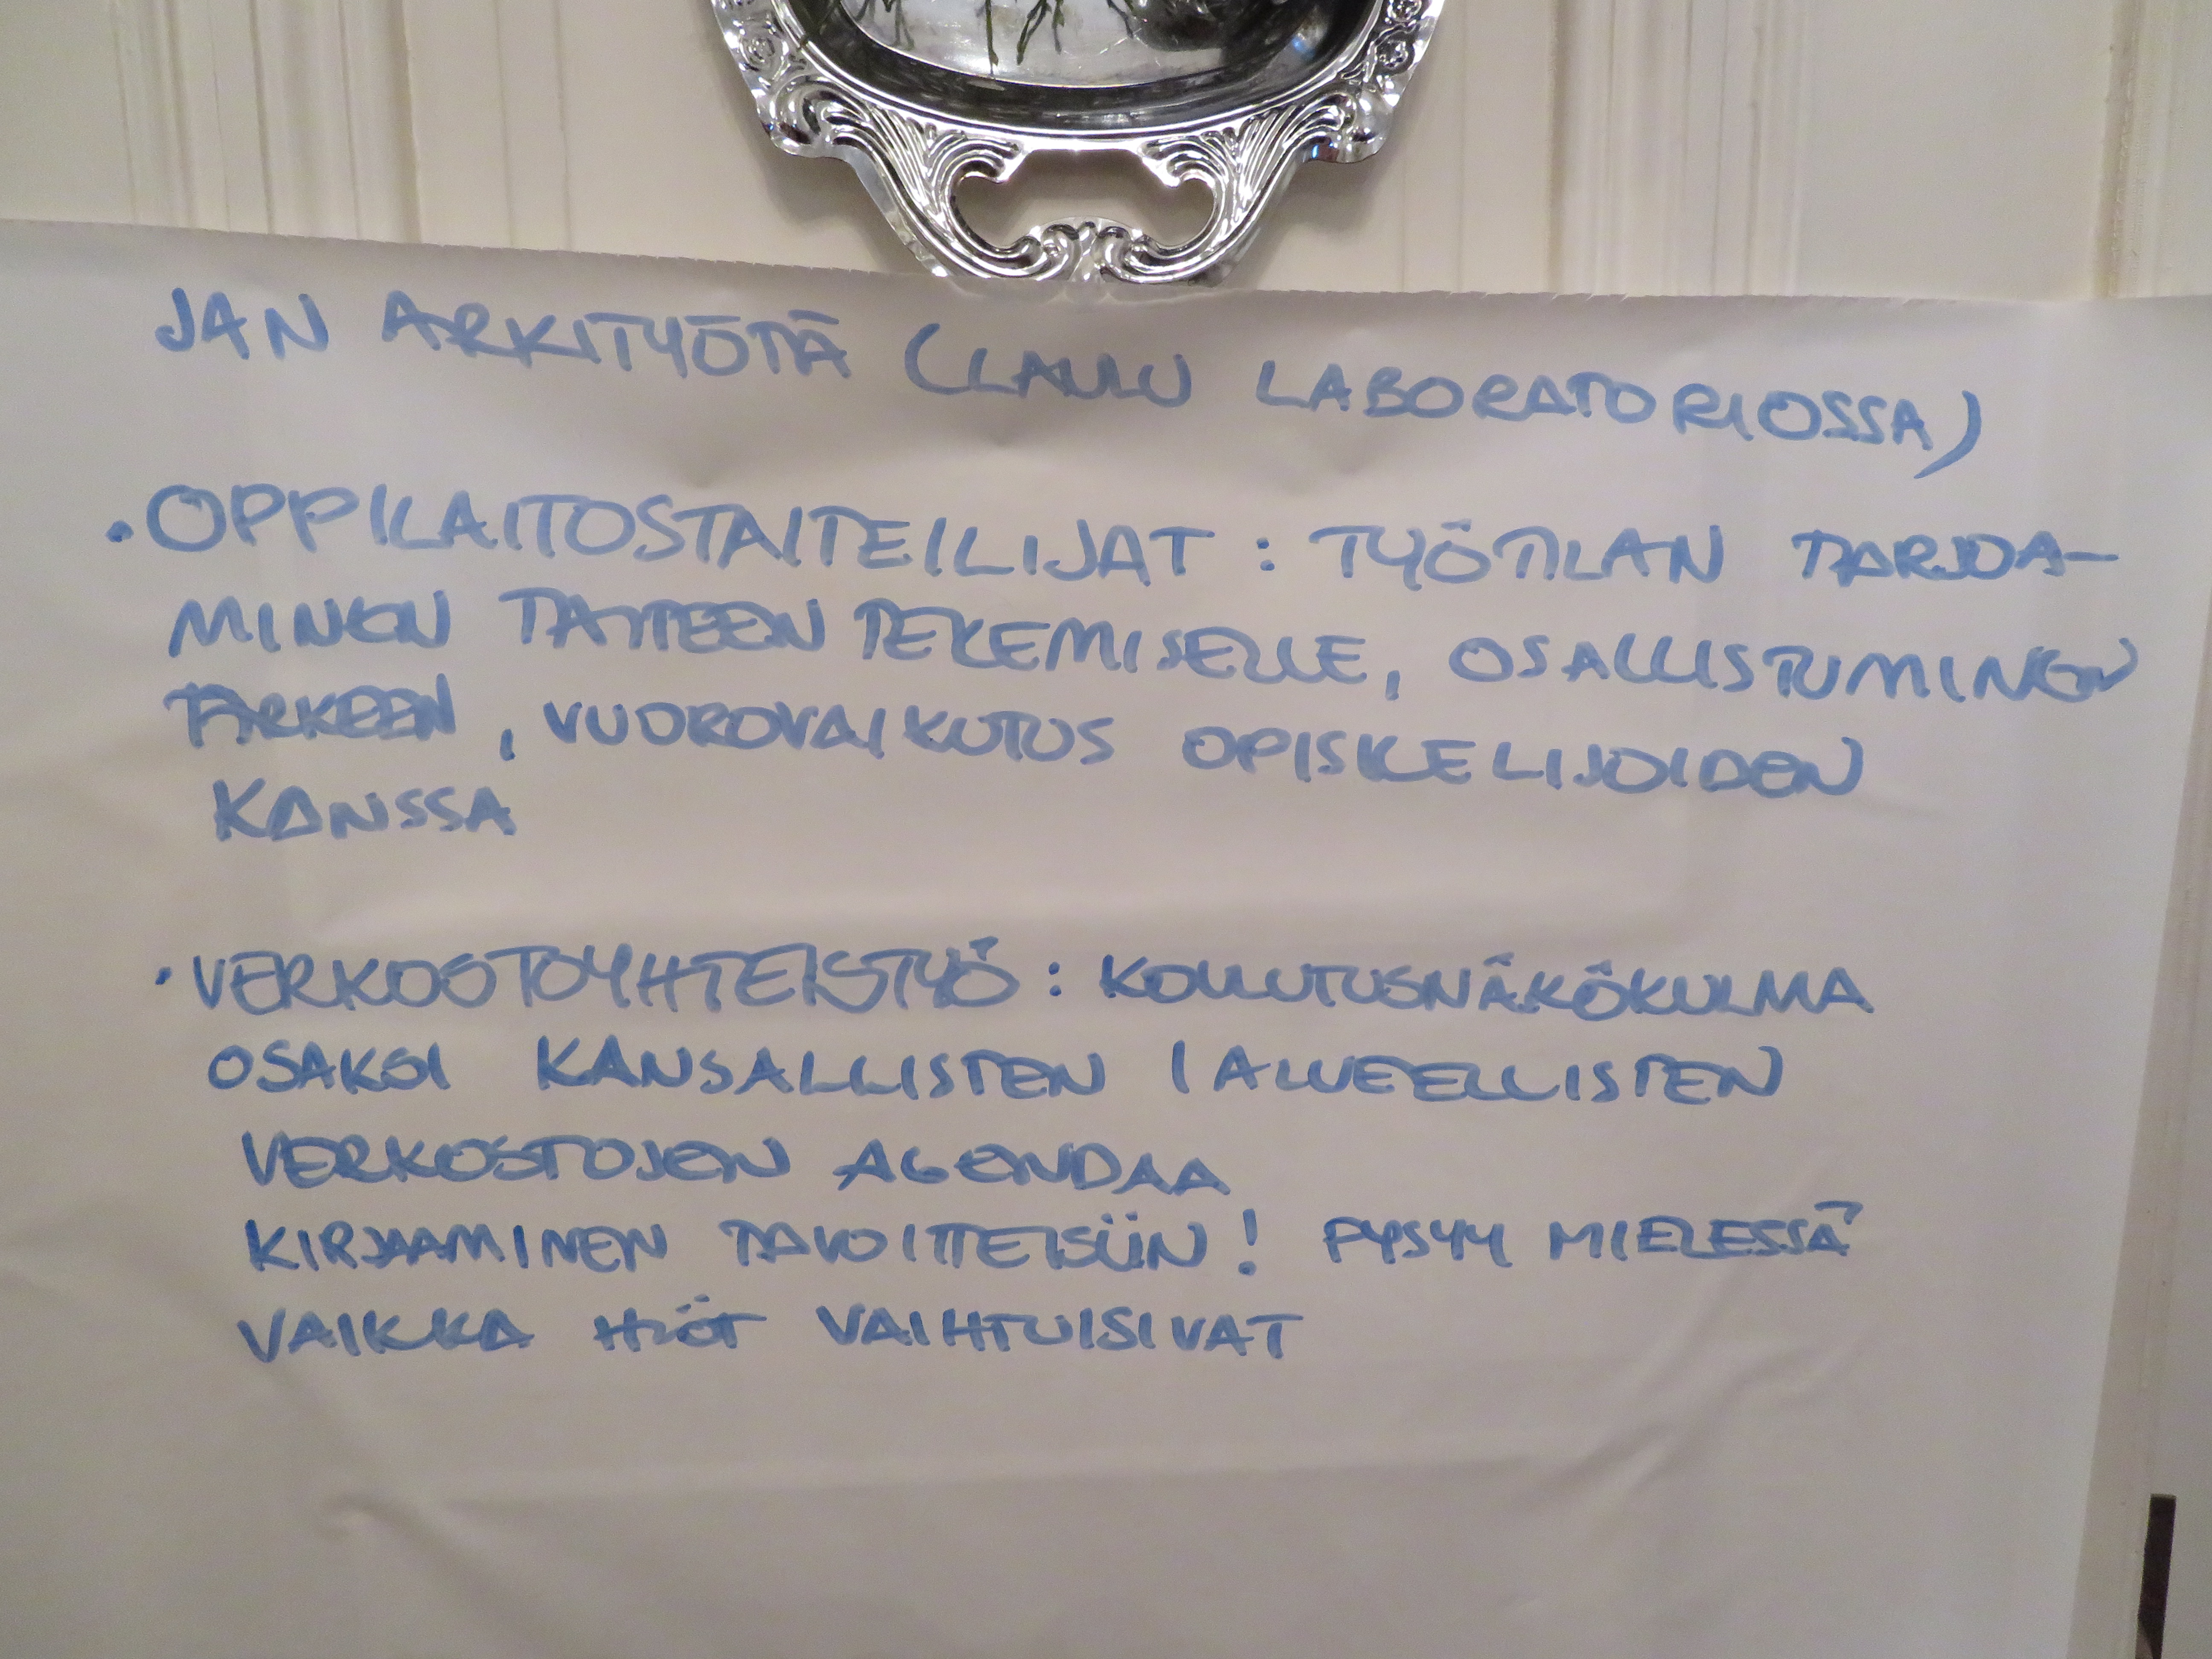 JAN ARKITYÖTÄ (LAULU LABORATORIOSSA)
• OPPILAITOSTAITEILIJAT : TYÖTILAN TARJOA-
MINEN TAITEEN TEKEMISELLE, OSALLISTUMINEN
ARKEEN, VUOROVAIKUTUS OPISKELIJOIDEN
KANSSA
• VERKOSTOYHTEISTYÖ : KOULUTUSNÄKÖKULMA
OSAKSI KANSALLISTEN / ALUEELLISTEN
VERKOSTOJEN AGENDAA
KIRJAAMINEN TAVOITTEISIIN! PYSYY MIELESSÄ
VAIKKA HLÖT VAIHTUISIVAT